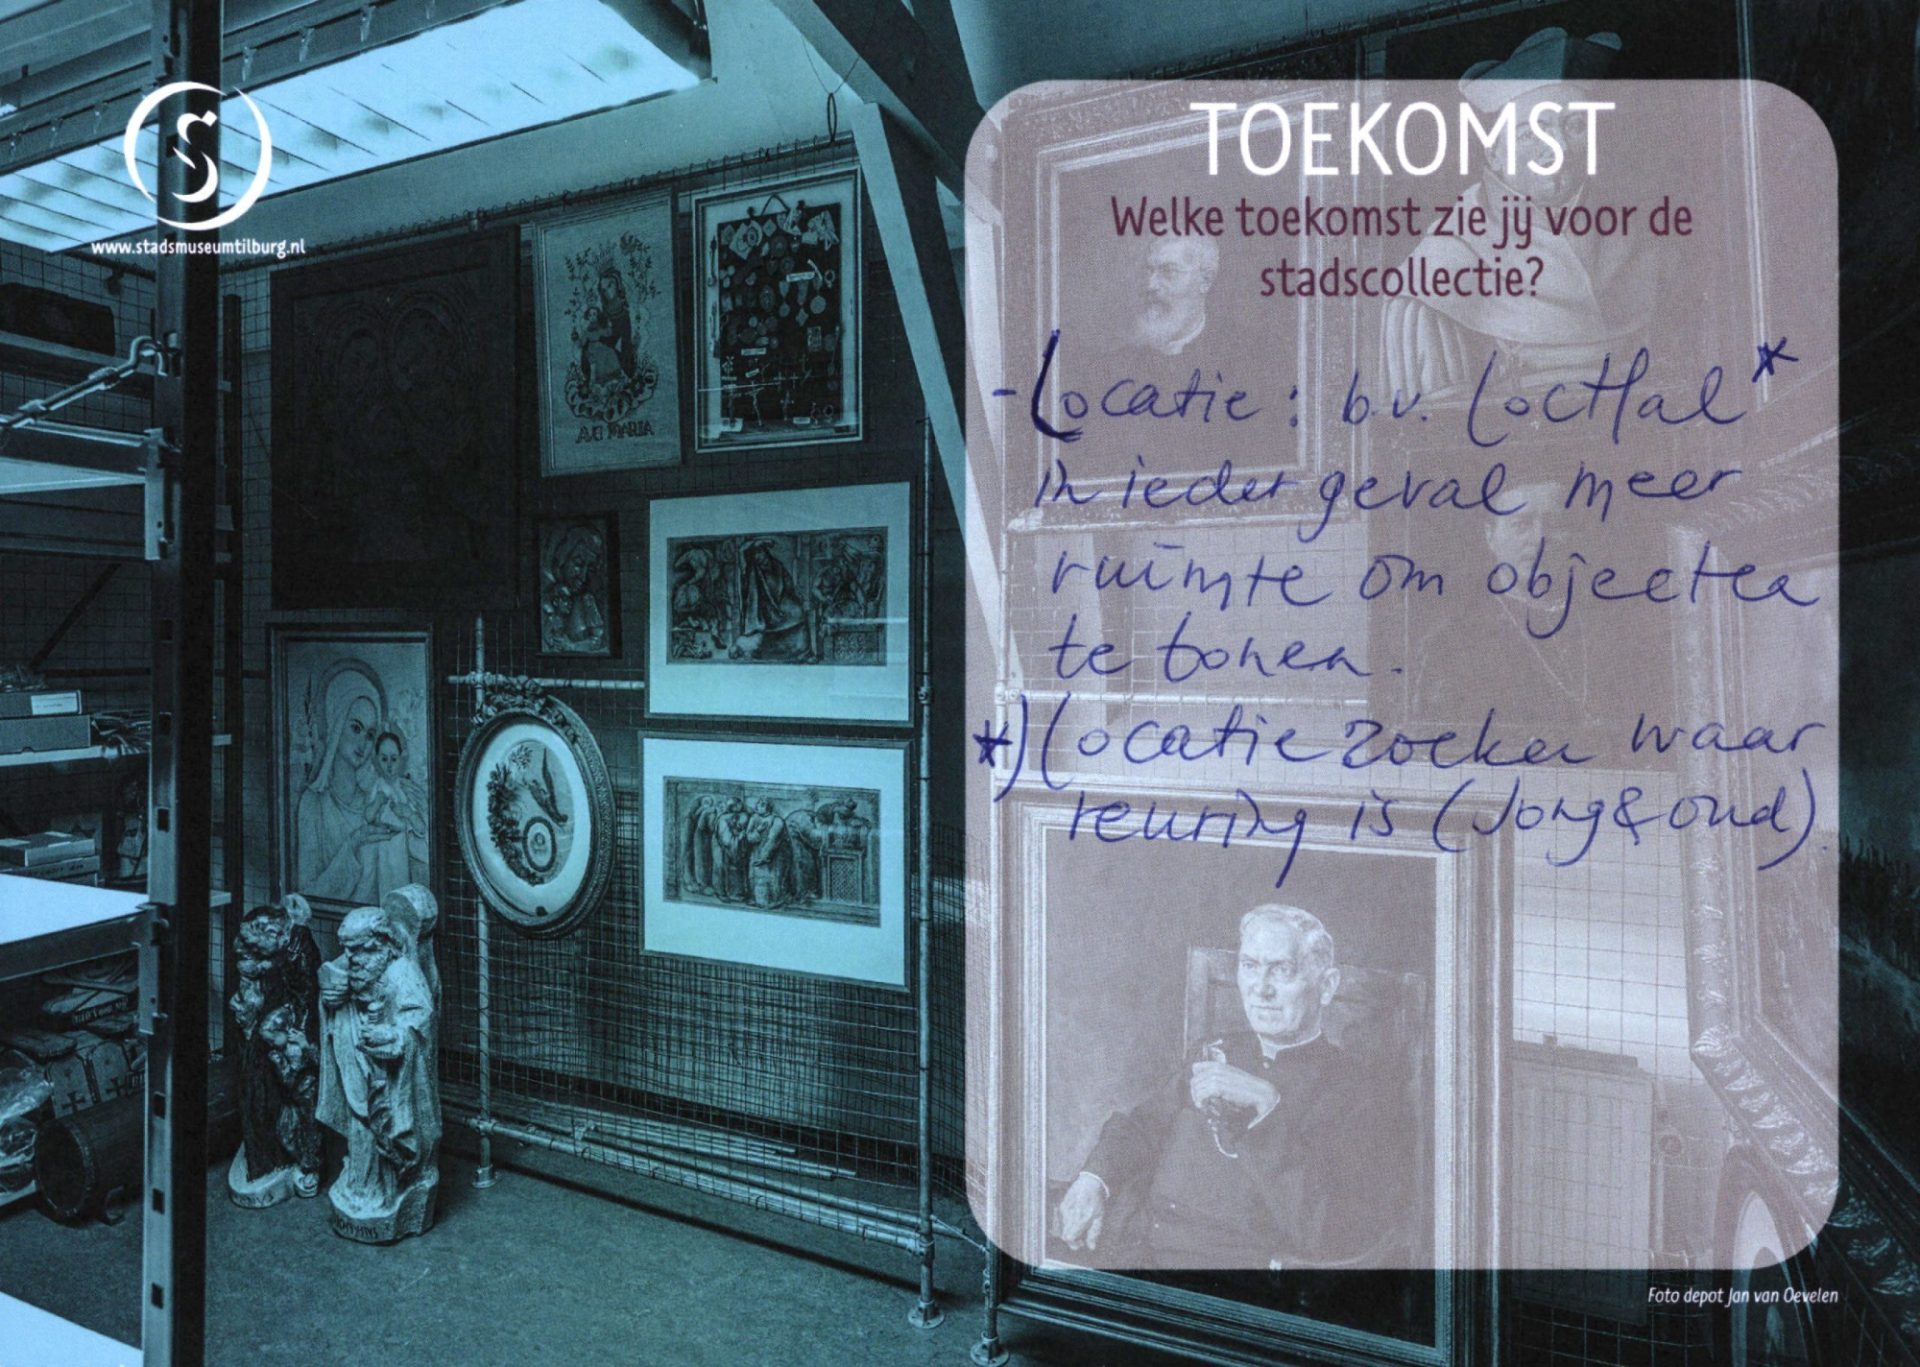 www.stadsmuseumtilburg.nl
TOEKOMST
Welke toekomst zie jij voor de
stadscollectie?
- Locatie: b.v. LocHal *
in ieder geval meer
ruimte om objecten
te tonen.
*) Locatie zoeken waar
reuring is (Jong & oud).
AVE MARIA
Foto depot Jan van Oevelen